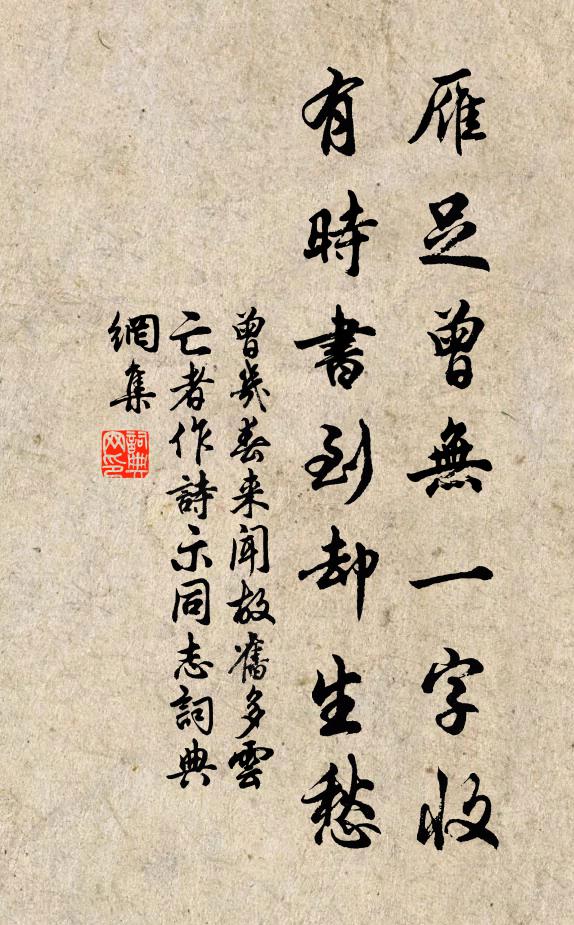 雁足曾無一字收
有時書到却生愁
曾幾春来聞故舊多雲
亡者作詩示同志詞典
網集
詞典
网印